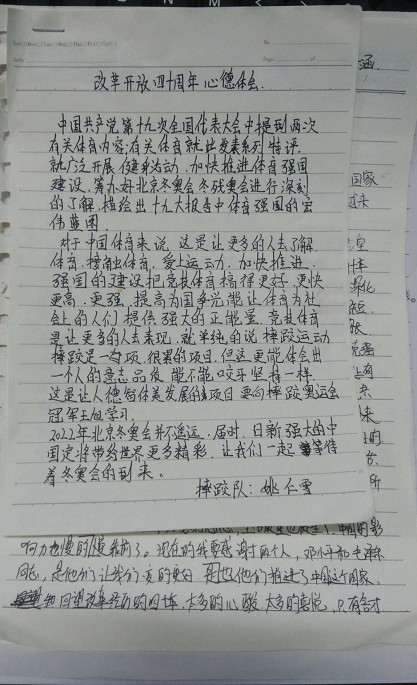 改革开放四十周年心德体会.
中国共产党第十九次全国代表大会中提到两次
有关体育内容:有关体育就业发表系列特评.
就广泛开展健身运动.加快推进体育强国
建设.筹办好北京冬奥会冬残奥会进行深刻
的了解.描绘出十九大报告中体育强国的宏
伟蓝图.
对于中国体育来说.这是让更多的人去了解
体育.接触体育.爱上运动.加快推进.
强国的建设把竞技体育搞得更好.更快
更高.更强.提高为国争光能让体育为社
会上的人们提供强大的正能量.竞技体育
是让更多的人去表现.就单纯的说摔跤运动
摔跤是一项很累的项目.但这更能体会出
一个人的意志品质.能不能咬牙坚持一样
这是让人德智体美发展的项目要向摔跤奥运会
冠军王旭学习.
2022年北京冬奥会并不遥远.届时.日新强大的中
国定将带给世界更多精彩.让我们一起等待
着冬奥会的到来.
摔跤队:姚仁雪
涵.
国家
强化
克强
所
中国的影
响力也慢的慢希朗了。现在的我要感谢两个人,邓小平和毛泽东
同志,是他们让我们变的更好 是他们推进了中国这个国家.
回望改革经历的四十年.太多的心酸 太多的喜悦.只有含才